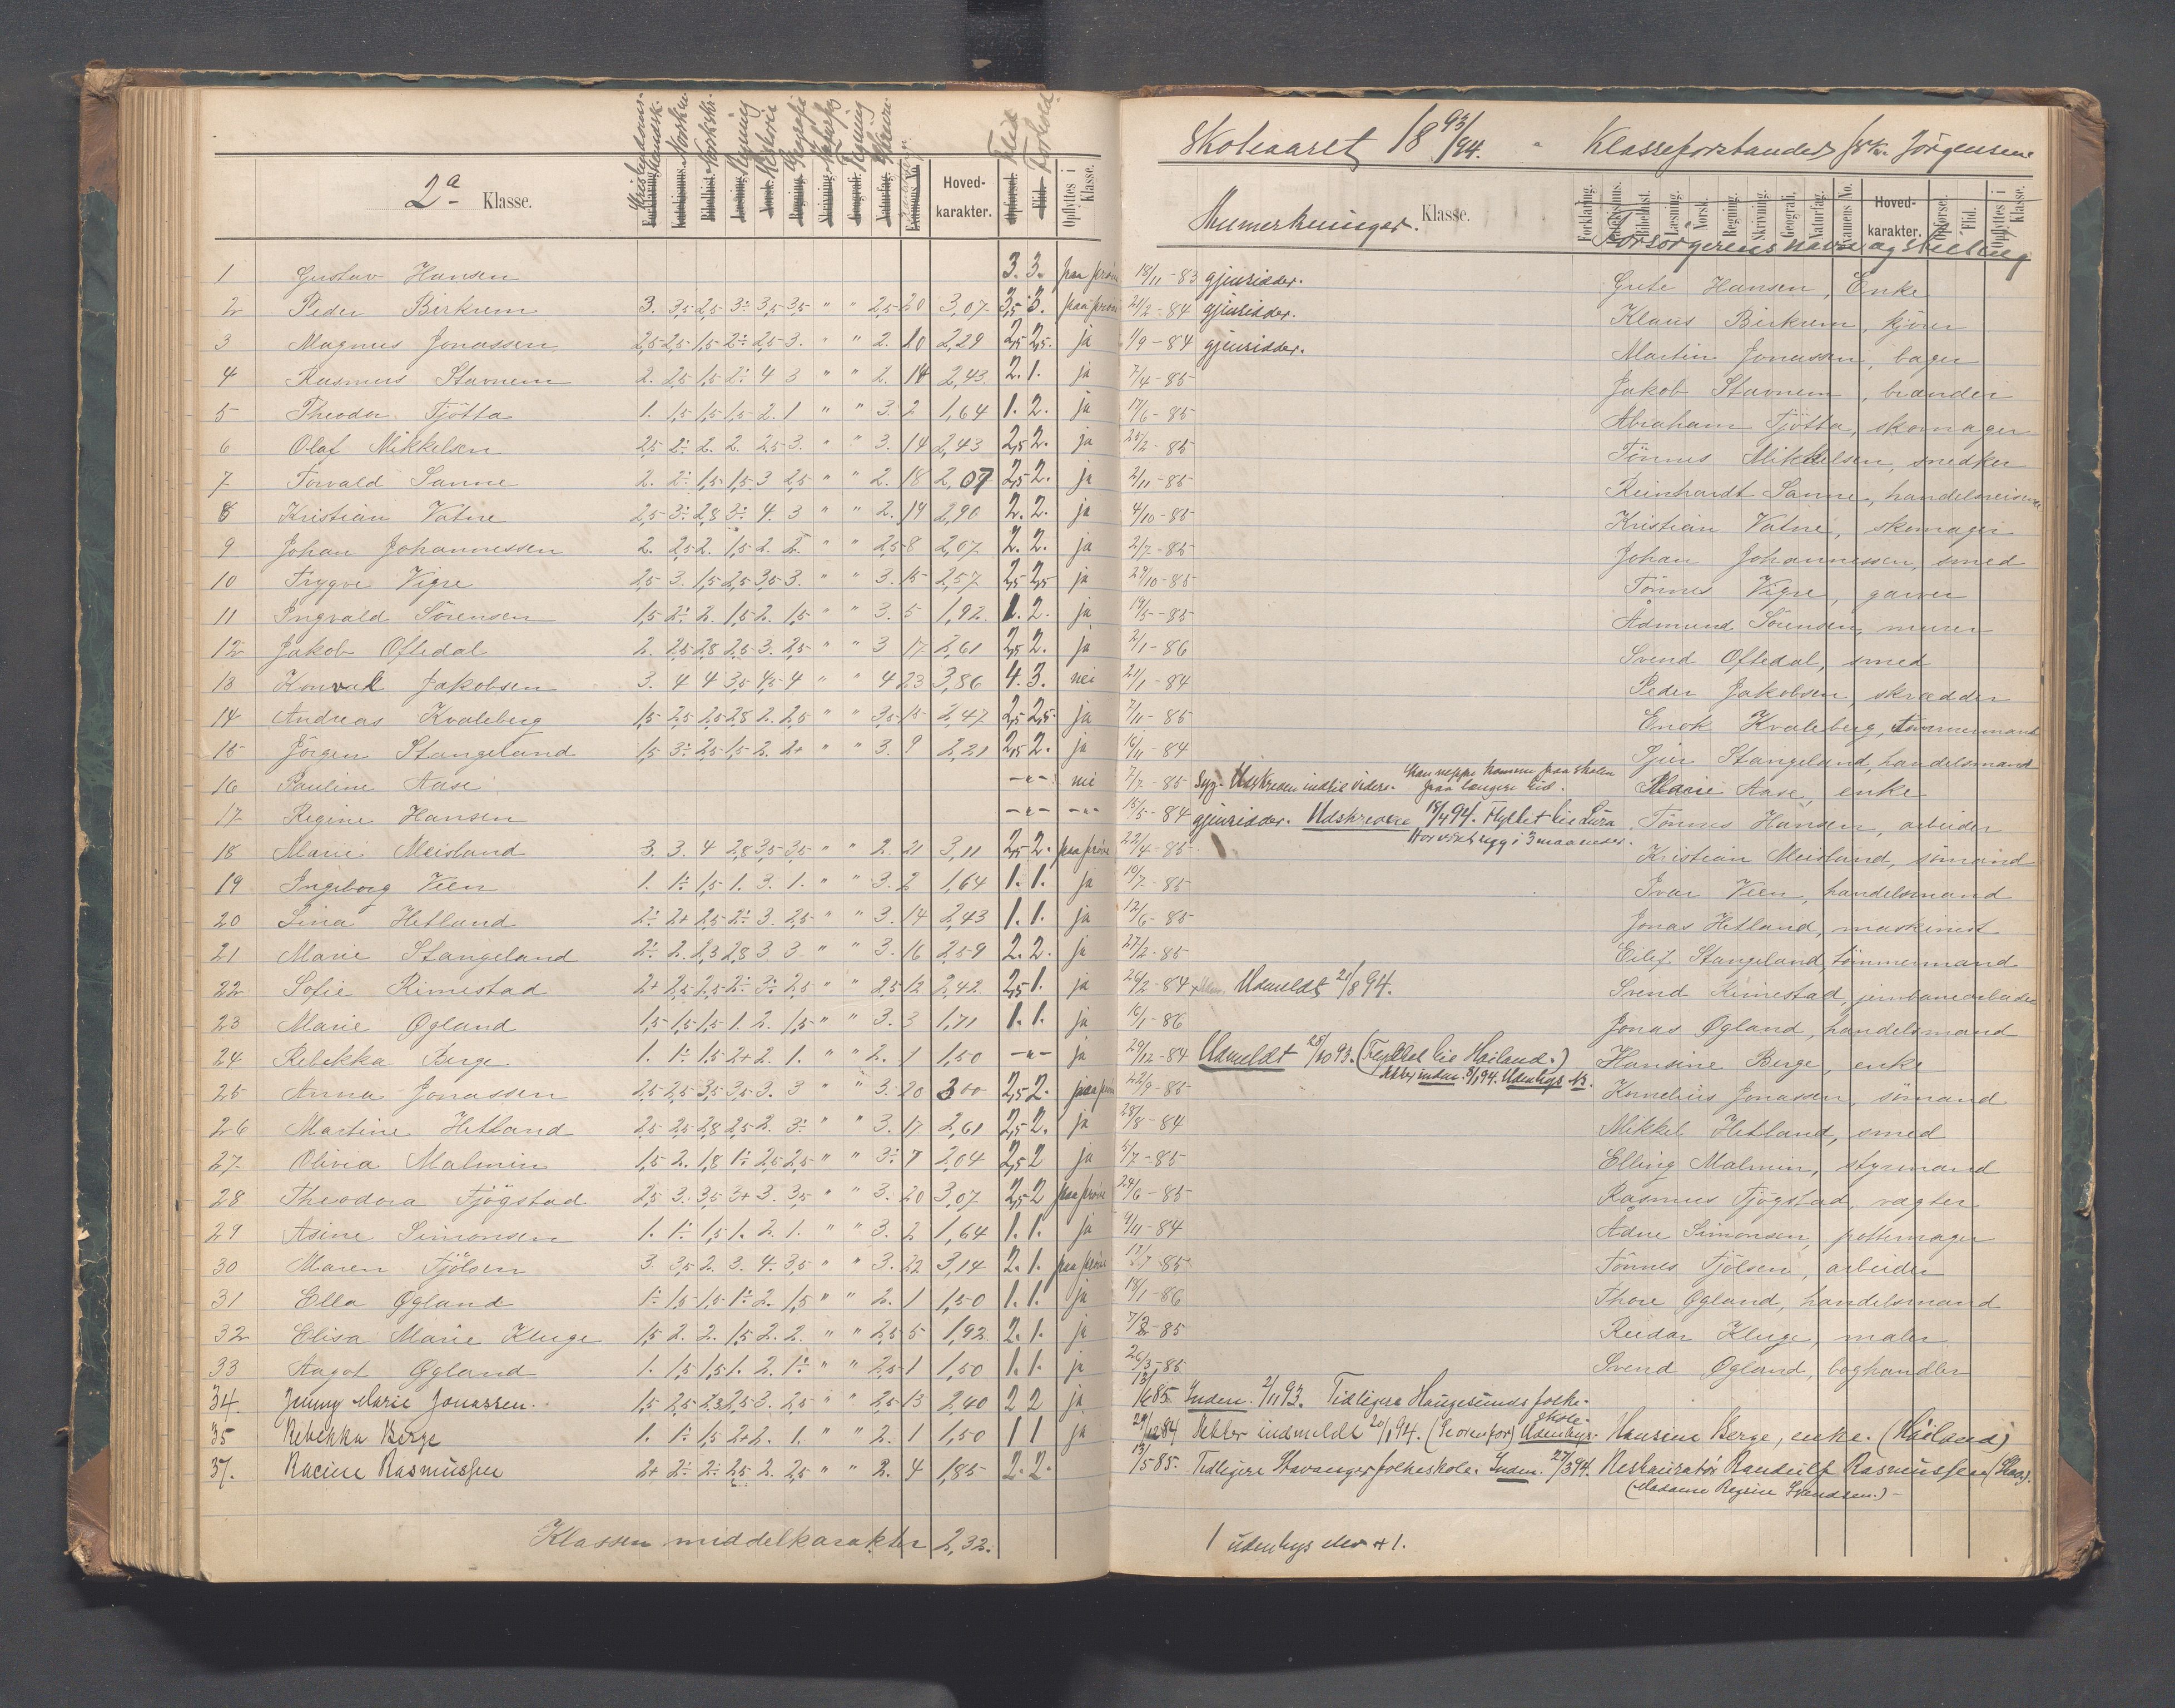 Skoleaaret 18 93/94. Klasseforstander frk. Jörgensen
2a Klasse.
Hoved-karakter.
Flid Forhold
Opflyttes i Klasse.
Anmerkninger. Klasse.
Forsörgerens navn og stilling
1 Gustav Hansen 3. 3. paa prøve 18/11-83 gjensidder. Grete Hansen, Enke
2 Peder Birkrem 3. 3,5 2,5 3÷ 3,5 3,5 " " 2,5 20 3,07 3,5 3. paa prøve 21/2-84 gjensidder. Klaus Birkrem, kjører
3 Magnus Jonassen 2,5 2,5 1,5 2÷ 2,5 3. " " 2. 10 2,29 2,5 2,5. ja 1/9-84 gjensidder. Martin Jonassen, bager
4 Rasmus Stavnem 2. 2,5 1,5 2÷ 4 3 " " 2. 14 2,43 2. 1. ja 7/4-85 Jakob Stavnem, brænder
5 Theodor Tjötta 1. 1,5 1,5 1,5 2. 1 " " 3. 2 1,64 1. 2. ja 17/6-85 Abraham Tjötta, skomager
6 Olaf Mikkelsen 2,5 2÷ 2. 2. 2,5 3. " " 3. 14 2,43 2,5 2. ja 25/2-85 Tönnes Mikkelsen, snedker
7 Torvald Sanne 2. 2÷ 1,5 1,5 3 2,5 " " 2. 18 2,07 2,5 2. ja 2/11-85 Reinhardt Sanne, handelsreisende
8 Kristian Vatne 2,5 3÷ 2,8 3÷ 4. 3 " " 2. 19 2,90 2. 2. ja 4/10-85 Kristian Vatne, skomager
9 Johan Johannessen 2. 2,5 2. 1,5 2. 2. " " 2,5 8 2,07 2. 2. ja 2/7-85 Johan Johannessen, smed
10 Trygve Vigre 2,5 3. 1,5 2,5 3,5 3. " " 3. 15 2,57 2,5 2,5 ja 29/10-85 Tönnes Vigre, garver
11 Ingvald Sörensen 1,5 2÷ 2. 1,5 2. 1,5 " " 3. 5 1,92 1. 2. ja 19/5-85 Admund Sörensen, murer
12 Jakob Oftedal 2. 2,5 2,8 2,5 3. 2,5 " " 3 17 2,61 2,5 2. ja 2/1-86 Svend Oftedal, smed
13 Konval Jakobsen 3. 4 4 3,5 4,5 4 " " 4 23 3,86 4. 3. nei 21/1-84 Peder Jakobsen, skrædder
14 Andreas Kvaleberg 1,5 2,5 2,5 2,8 2. 2,5 " " 3,5 15 2,47 2,5 2,5. ja 7/11-85 Enok Kvaleberg, tömmermand
15 Jörgen Stangeland 1,5 3÷ 2,5 1,5 2. 2+ " " 3. 9 2,21 2,5 2. ja 16/11-84 Sjur Stangeland, handelsmand
16 Pauline Aase -"- nei 7/7-85 Syg. Udskreven indtil videre. Kan neppe komme paa skolen paa længere tid. Marie Aase, enke
17 Regine Hansen -"- -"- 15/5-84 gjensidder. Udskreven 18/4 94. Flyttet til Lura Tönnes Hansen, arbeider
Har været syg i 3 maaneder.
18 Marie Meisland 3. 3. 4 2,8 3,5 3,5 " " 2. 21 3,11 2,5 2. paa prøve 22/4-85 Kristian Meisland, sömand
19 Ingeborg Veen 1. 1÷ 1,5 1. 3. 1. " " 3. 2 1,64 1. 1. ja 19/7-85 Ivar Veen, handelsmand
20 Lina Hetland 2÷ 2+ 2,5 2÷ 3. 2,5 " " 3. 14 2,43 1. 1. ja 12/6-85 Jonas Hetland, maskinist
21 Marie Stangeland 2÷ 2. 2,3 2,8 3 3 " " 3. 16 2,59 2. 2. ja 27/2-85 Eilef Stangeland, tömmermand
22 Sofie Rimestad 2+ 2,5 2,5 2÷ 3÷ 2,5 " " 2,5 12 2,42 2,5 1. ja 24/2-84 Udmeldt 21/8 94. Svend Rimestad, jernbanearbeider
23 Marie Øgland 1,5 1,5 1,5 1. 2. 1,5 " " 3. 3 1,71 1. 1. ja 16/1-86 Jonas Øgland, handelsmand
24 Rebekka Berge 1. 1÷ 1,5 2+ 2. 1. " " 2. 1 1,50 -"- ja 29/12-84 Udmeldt 25/10 93. (Flyttet til Høiland.) Hansine Berge, enke
Atter indm. 8/1 94. Udenbys
25 Anna Jonassen 2,5 2,5 3,5 3,5 3. 3 " " 3. 20 3,00 2,5 2. paa prøve 22/9-85 Kornelius Jonassen, sömand
26 Martine Hetland 2,5 2,5 2,8 2,5 2. 3÷ " " 3. 17 2,61 2,5 2. ja 28/8-84 Mikkel Hetland, smed
27 Olivia Malmin 1,5 2. 1,8 1÷ 2,5 2,5 " " 3÷ 7 2,04 2,5 2 ja 5/7-85 Elling Malmin, styrmand
28 Theodora Tjögstad 2,5 3. 3,5 3+ 3. 3,5 " " 3. 20 3,07 2,5 2 paa prøve 24/6-85 Rasmus Tjögstad, vægter
29 Asine Simonsen 1. 1÷ 1,5 1. 2. 1. " " 3. 2 1,64 1. 1. ja 9/11-84 Adne Simonsen, pottemager
30 Maren Tjölsen 3. 3,5 2. 3. 4÷ 3,5 " " 3. 22 3,14 2. 1. paa prøve 17/7-85 Tönnes Tjölsen, arbeider
31 Ella Øgland 1÷ 1,5 1,5 1÷ 2. 1,5 " " 2. 1 1,50 1. 1. ja 18/1-86 Thore Øgland, handelsmand
32 Elisa Marie Kluge 1,5 2. 2. 1,5 2. 2. " " 2,5 5 1,92 2. 1. ja 7/2-85 Reidar Kluge, maler
33 Aagot Øgland 1. 1,5 1,5 1. 2. 1÷ " " 2,5 1 1,50 1. 1. ja 26/3-85 Svend Øgland, boghandler
34. Jenny Marie Jonassen. 1,5 2,5 2,3 2,5 3. 2,5 " " 2,5 13 2,40 2 2 ja 13/6 85 Indm. 2/11 93. Tidligere Haugesunds folkeskole.
35 Rebekka Berge 1. 1÷ 1,5 2+ 2. 1. " " 2. 1 1,50 1 1 ja 29/12 84 Atter indmeldt 20/1 94. (Se ovenfor) Udenbys. Hansine Berge, enke. (Høiland)
37. Racine Rasmussen 2+ 2÷ 2÷ 2,5 2. 2,5 " " 2. 4 1,85 2. 2. 13/5 85. Tidligere Stavanger folkeskole. Indm. 27/3 94. Restauratör Randulf Rasmussen
(Madame Regine Svendsen.)
Klassens middelkarakter 2,32.
1 udenbys elev + 1.